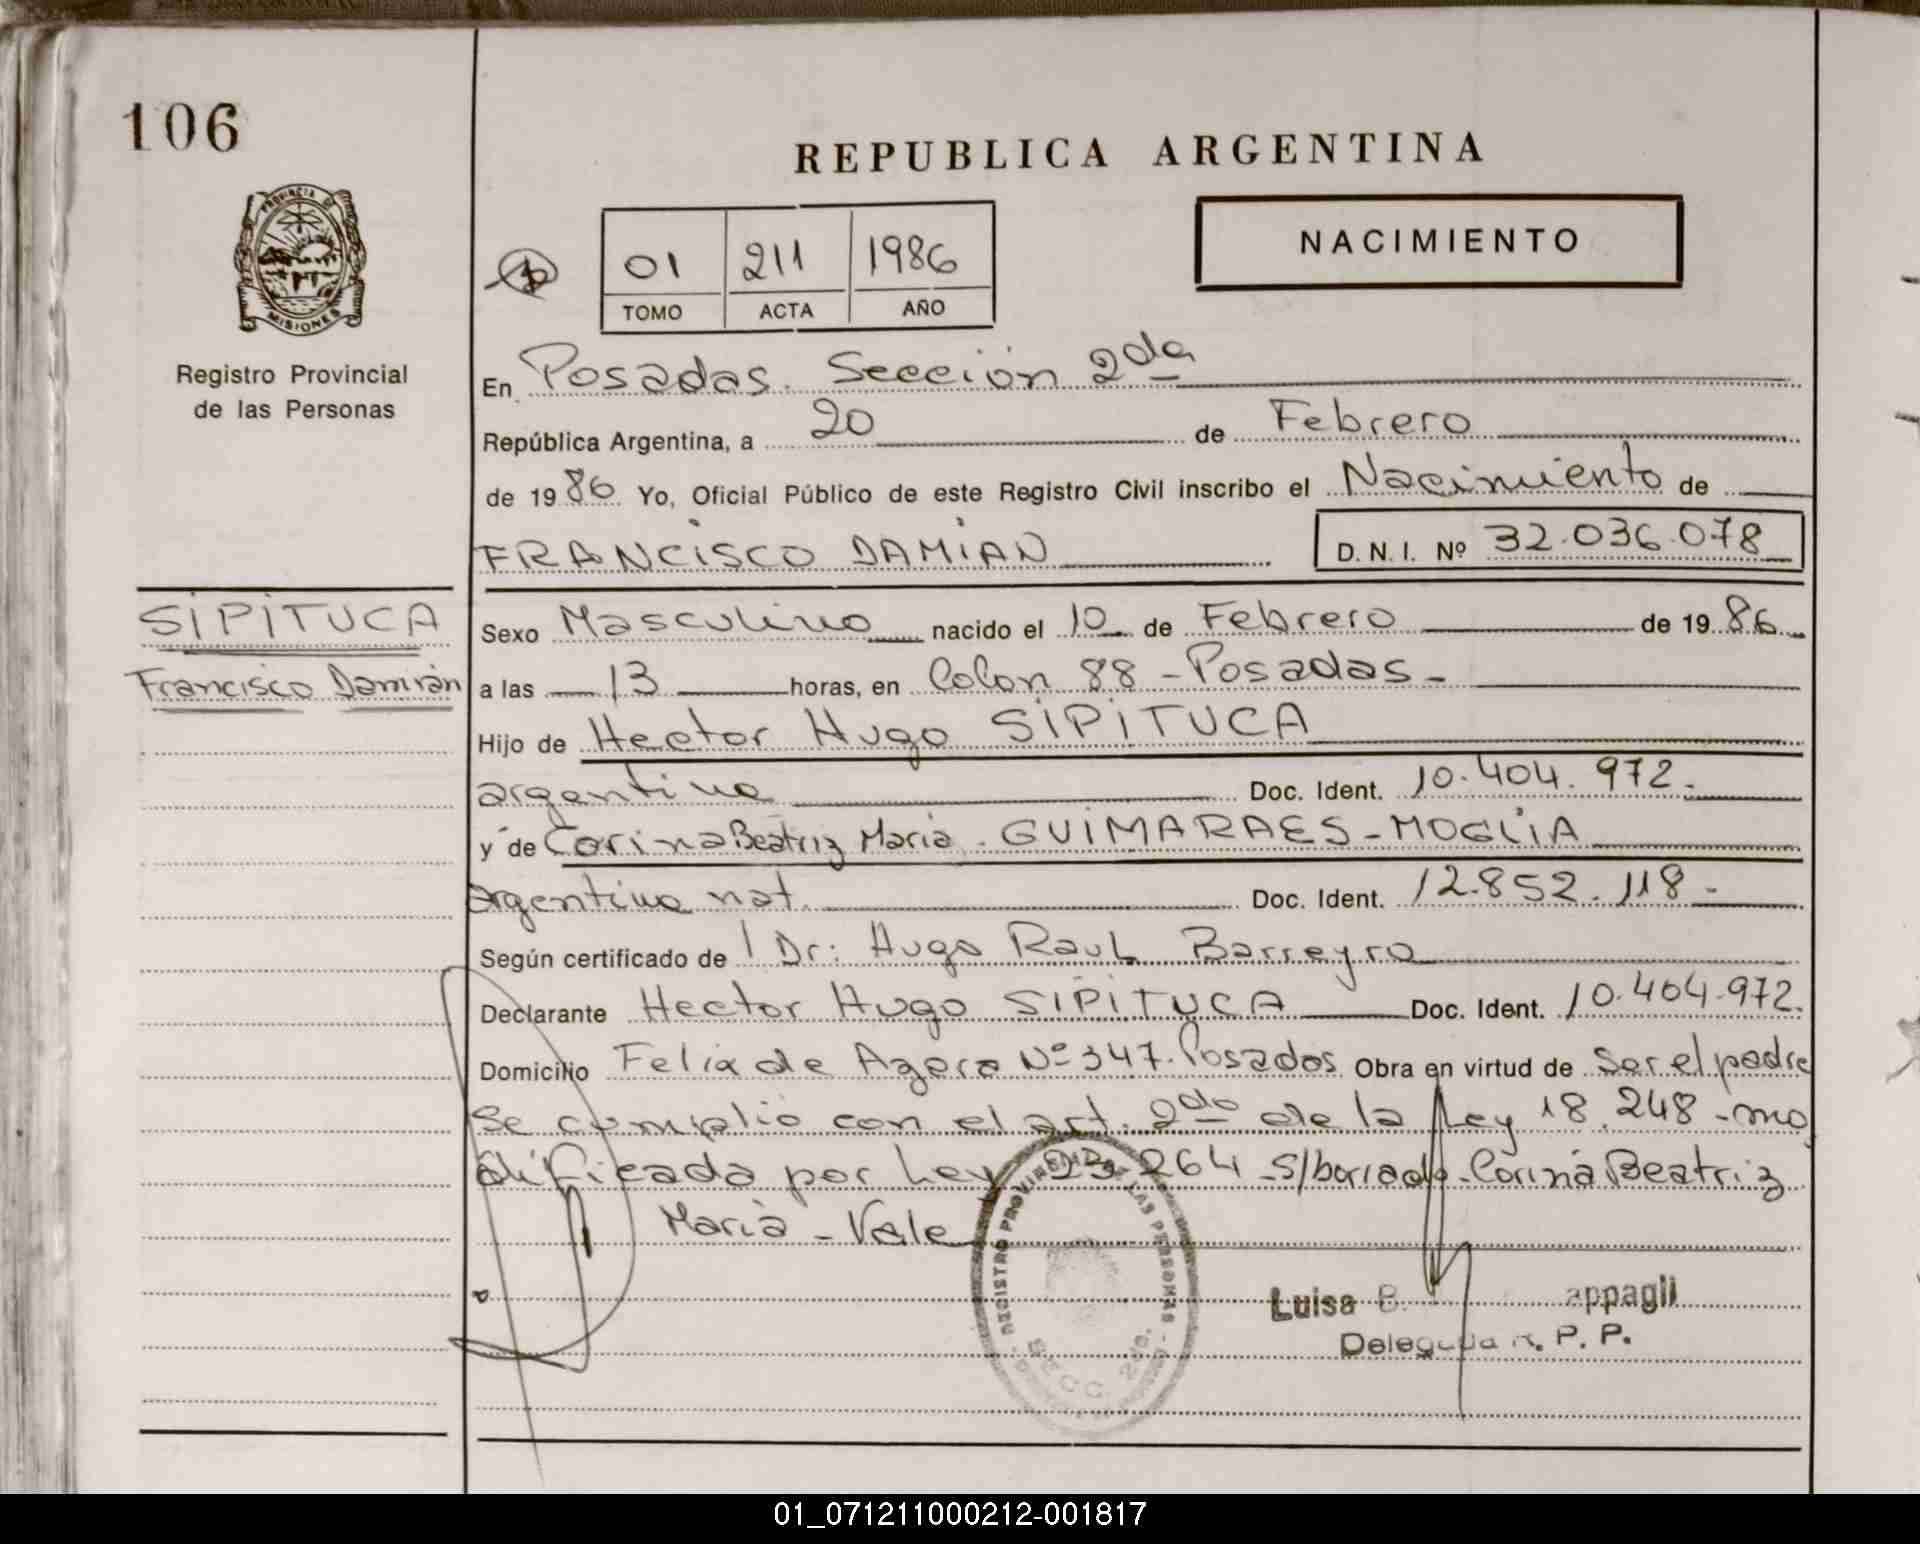 106
REPUBLICA ARGENTINA
PROVINCIA D
MISIONES
Registro Provincial
de las Personas
01 211 1986
TOMO ACTA AÑO
NACIMIENTO
En Posadas. Sección 2da
República Argentina, a 20 de Febrero
de 1986 Yo, Oficial Público de este Registro Civil inscribo el Nacimiento de
FRANCISCO DAMIAN D. N. I. Nº 32.036.078
SIPITUCA
Francisco Damián
Sexo Masculino nacido el 10 de Febrero de 1986
a las 13 horas, en Colon 88 - Posadas -
Hijo de Hector Hugo SIPITUCA
argentino Doc. Ident. 10.404.972.-
y de Corina Beatriz Maria - GUIMARAES - MOGLIA
argentina nat. Doc. Ident. 12.852.118 -
Según certificado de l Dr: Hugo Raul Barreyro
Declarante Hector Hugo SIPITUCA Doc. Ident. 10.404.972.
Domicilio Felix de Azara Nº 347. Posadas Obra en virtud de Ser el padre
Se cumplió con el art. 2do de la Ley 18.248 - mo
dificada por Ley 23.264 - S/borrado - Corina Beatriz
Maria - Vale
REGISTRO PROVINCIAL DE LAS PERSONAS
SECC. 2da.
Luisa B. appagli
Delegada R. P. P.
01_071211000212-001817